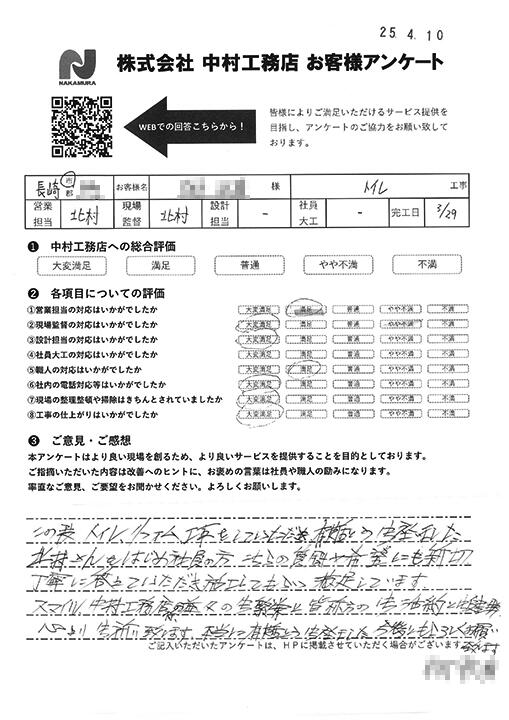 25. 4. 10
NAKAMURA
株式会社 中村工務店 お客様アンケート
WEBでの回答こちらから！
皆様によりご満足いただけるサービス提供を
目指し、アンケートのご協力をお願い致して
おります。
長崎 市 郡 お客様名 様 トイレ 工事
営業担当 北村 現場監督 北村 設計担当 - 社員大工 - 完工日 3/29
❶ 中村工務店への総合評価
大変満足 満足 普通 やや不満 不満
❷ 各項目についての評価
①営業担当の対応はいかがでしたか 大変満足 満足 普通 やや不満 不満
②現場監督の対応はいかがでしたか 大変満足 満足 普通 やや不満 不満
③設計担当の対応はいかがでしたか 大変満足 満足 普通 やや不満 不満
④社員大工の対応はいかがでしたか 大変満足 満足 普通 やや不満 不満
⑤職人の対応はいかがでしたか 大変満足 満足 普通 やや不満 不満
⑥社内の電話対応等はいかがでしたか 大変満足 満足 普通 やや不満 不満
⑦現場の整理整頓や掃除はきちんとされていましたか 大変満足 満足 普通 やや不満 不満
⑧工事の仕上がりはいかがでしたか 大変満足 満足 普通 やや不満 不満
❸ ご意見・ご感想
本アンケートはより良い現場を創るため、より良いサービスを提供することを目的としております。
ご指摘いただいた内容は改善へのヒントに、お褒めの言葉は社員や職人の励みになります。
率直なご意見、ご要望をお聞かせください。よろしくお願いします。
この度、トイレリフォーム工事をしていただき有難う御座いました
北村さんをはじめ社員の方、こちらの質問や希望にも親切
丁寧に答えていただき施工してもらい満足しています。
スマイル中村工務店の益々の御繁栄と皆様方の御活躍と御健勝
心よりお祈り致します。本当に有難う御座いました 今後ともよろしくお願い
致します
ご記入いただいたアンケートは、HPに掲載させていただく場合がございます